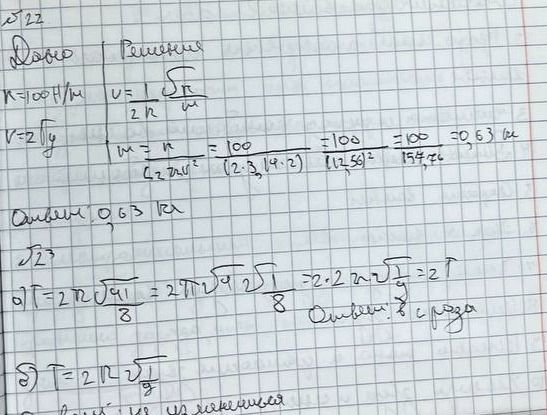 №22
Дано | Решение
k=100Н/м | ν=1/2π √k/m
ν=2Гц
m = k/(2πν)² = 100/(2·3,14·2) = 100/(12,56)² = 100/157,76 = 0,63 кг
Ответ: 0,63 кг
№23
а) T=2π√4l/g = 2π√4 √l/g = 2·2π√l/g = 2T
Ответ: в 2 раза
б) T=2π√l/g
не изменится